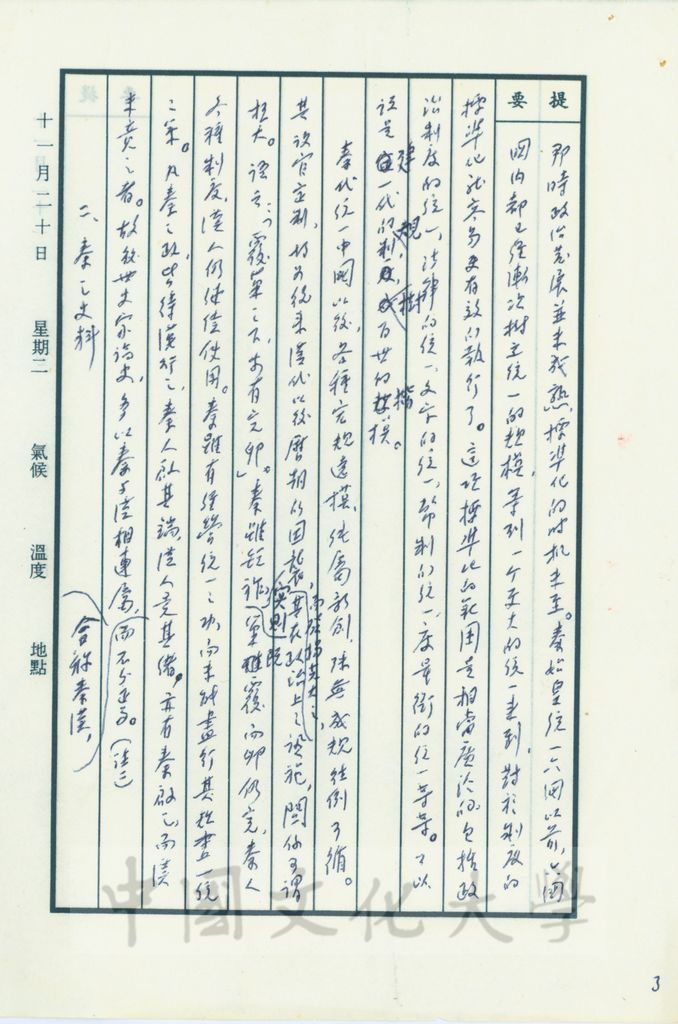 提要
那時政治發展並未成熟,標準化的時机未至。秦始皇統一六國以前,六國
國内都已經漸次樹立統一的規模,等到一个更大的統一來到,對於制度的
標準化就容易更有效的執行了。這項標準化的範圍是相當廣泛的,包括政
治制度的統一,法律的統一,文字的統一,幣制的統一,度量衡的統一等等。可以
說是建一代的制規,樹百世的楷模。
秦代統一中國以後,各種宏規遠摸,純屬新創,陳無成規往例可循。
其設官立制,均為後來漢代以後歷朝的因襲,其在政治上之設施,關係可謂
極大。語云:「覆巢之下,未有完卵」。秦雖短祚,實則巢既覆而卵仍完,秦人
各種制度,漢人仍繼續使用。秦雖有經營統一之功,而未能盡行其規畫一統
之策。凡秦之政,皆待漢行之,秦人啟其端,漢人竟其緒,亦有秦啟之而漢
未竟之者。故後世史家論史,多以秦與漢相連屬,而不分述焉。(註二)
合稱秦漢,
二、秦之史料
十一月二十日 星期二 氣候 溫度 地點
中國文化大學
3